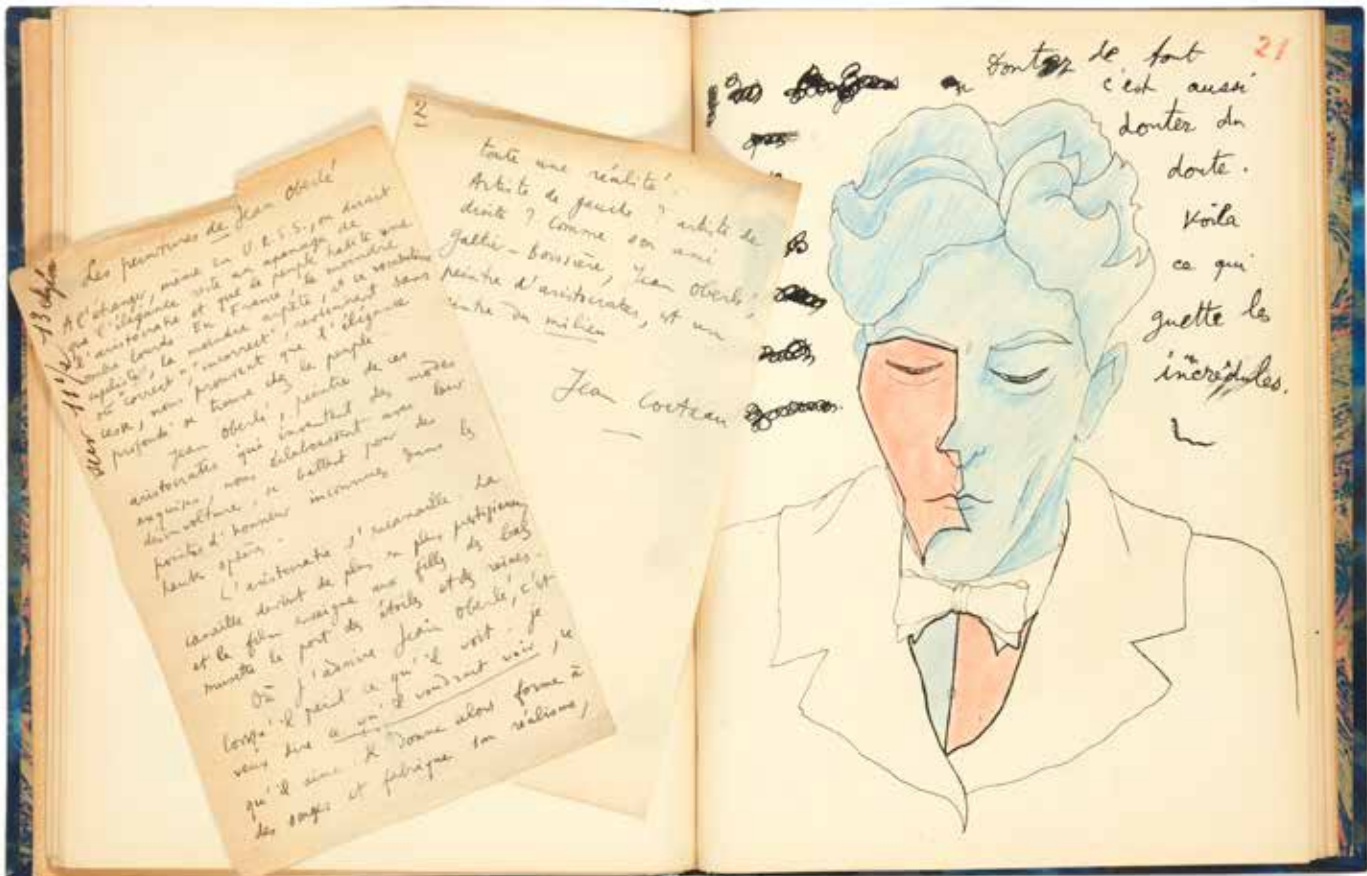 Les peintures de Jean Oberlé
A l'étranger, même en U.R.S.S., on dirait
que l'élégance reste un apanage de
l'aristocratie et que le peuple habite une
ombre lourde. En France, le moindre
la moindre arpète, et ce vocabulaire
où "correct", "incorrect" reviennent sans
cesse, nous prouvent que l'élégance
profonde se trouve chez le peuple
Jean Oberlé, peintre de ces
aristocrates qui inventent des modes
exquises, nous éclaboussent avec leur
désinvolture, se battent pour des
points d'honneur inconnus dans les
hautes sphères.
L'aristocratie s'encanaille. La
canaille devient de plus en plus prestigieuse
et le film enseigne aux filles des bals
musette le port des étoiles et des reines.
Où j'admire Jean Oberlé, c'est
lorsqu'il peint ce qu'il voit. je
veux dire ce qu'il voudrait voir, ce
qu'il aime. Il donne alors forme à
des songes et fabrique son réalisme,
2
toute une réalité.
Artiste de gauche ? artiste de
droite ? Comme son ami
Galtier-Boissière, Jean Oberlé,
peintre d'aristocrates, est un
peintre du milieu
Jean Cocteau
21
Douter de tout
c'est aussi
douter du
doute.
Voila
ce qui
guette les
incrédules.